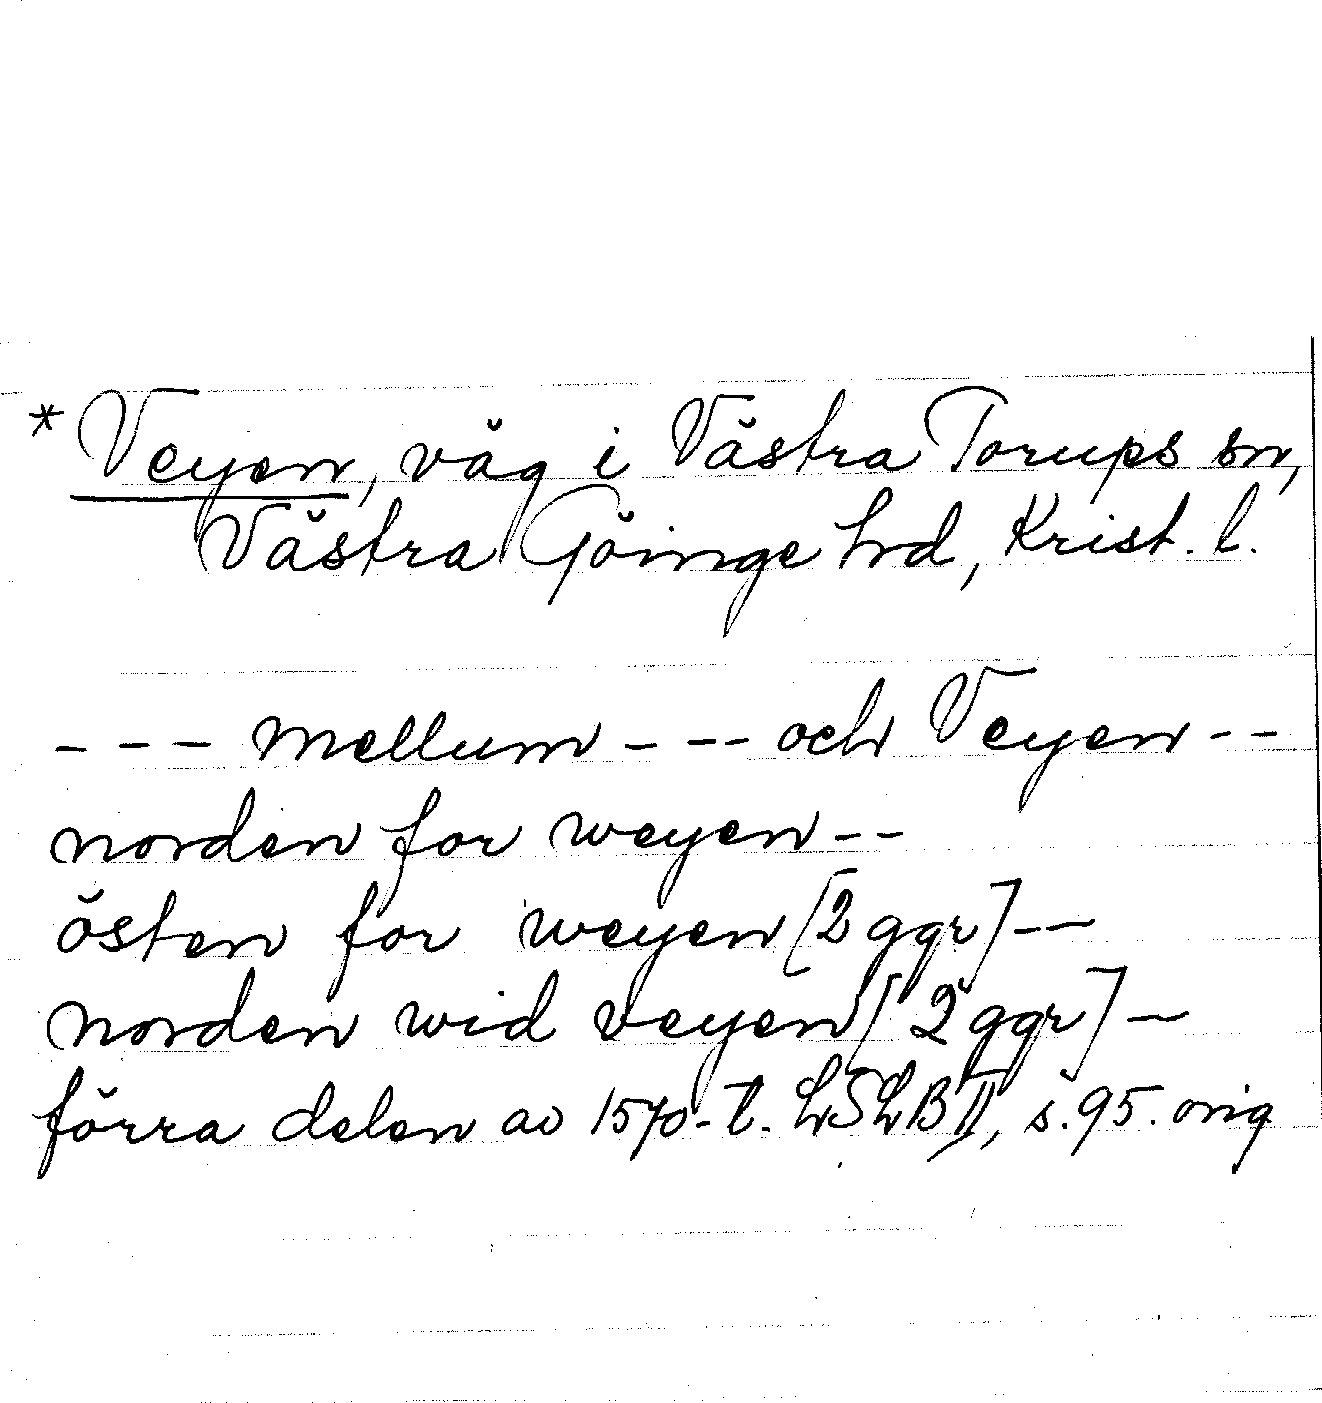 *Veyen, väg i Västra Torups sn,
Västra Göinge hrd, Krist. l.
--- mellum --- och Veyen --
norden for weyen --
östen for weyen [2 ggr] --
norden wid veyen [2 ggr] -
förra delen av 1570-t. LSLB II, s. 95. orig